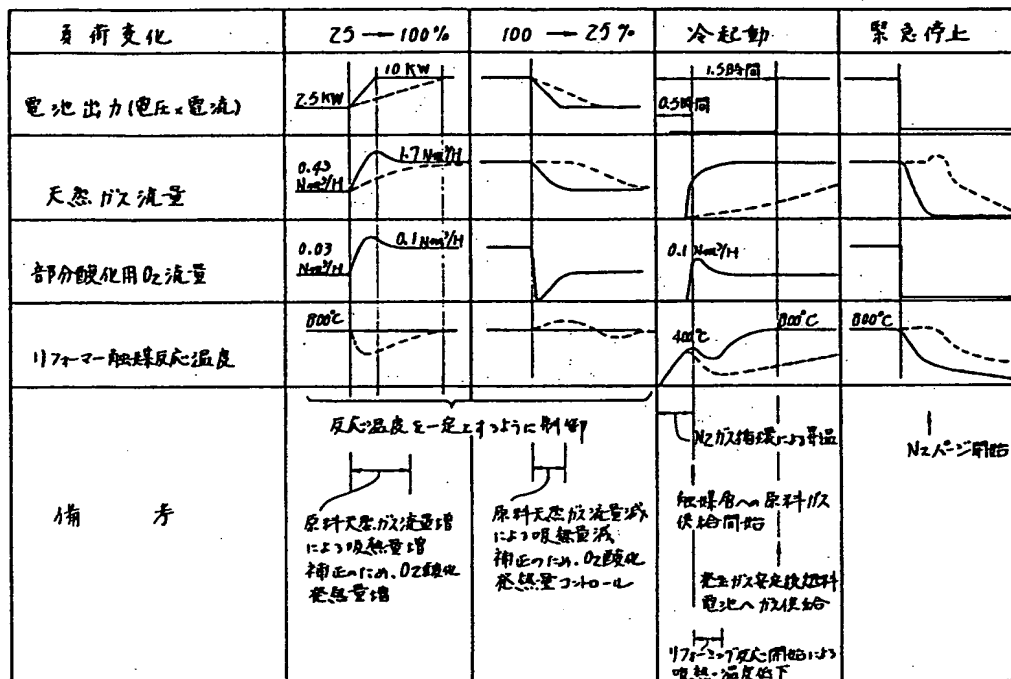 負荷変化
25 → 100%
100 → 25%
冷起動
緊急停止
電池出力(電圧×電流)
2.5KW
10KW
1.5時間
0.5時間
天然ガス流量
0.43
Nm³/H
1.7Nm³/H
部分酸化用O₂流量
0.03
Nm³/H
0.1Nm³/H
0.1Nm³/H
リフォーマー触媒反応温度
800℃
400℃
800℃
800℃
備考
反応温度を一定とするように制御
原料天然ガス流量増
による吸熱量増
補正のため、O2酸化
発熱量増
原料天然ガス流量減
による吸熱量減
補正のため、O2酸化
発熱量コントロール
N2ガス循環による昇温
触媒層への原料ガス
供給開始
発生ガス安定後燃料
電池へガス供給
リフォーミング反応開始による
吸熱・温度低下
N2パージ開始